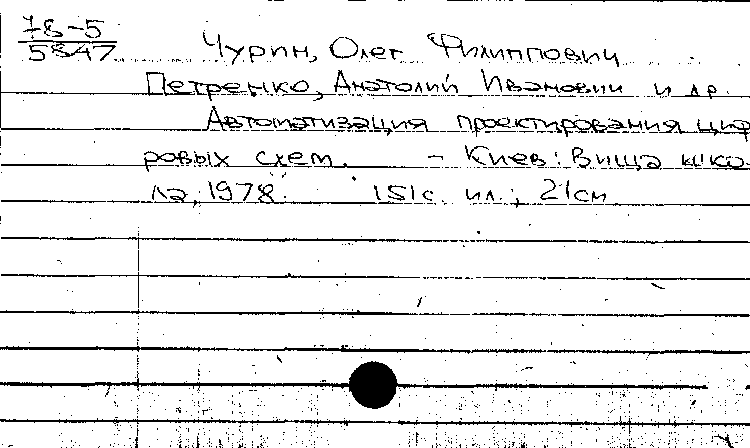 78-5
5847
Чурин, Олег Филиппович
Петренко, Анатолий Иванович и др.
Автоматизация проектирования циф
ровых схем. - Киев: Вища шко-
ла, 1978. 151с. ил.; 21см